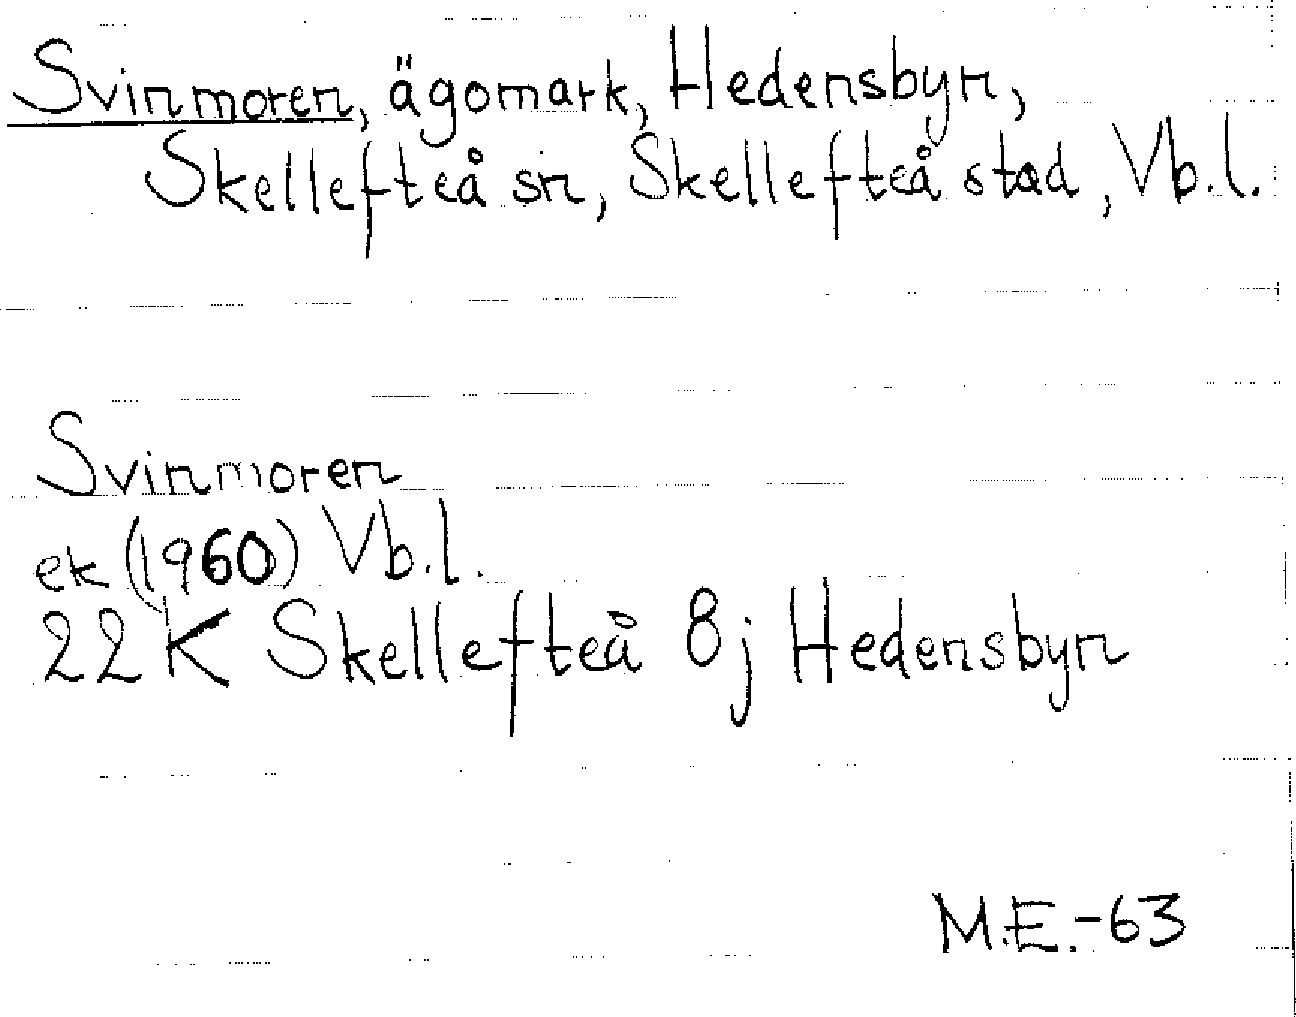 Svinmoren, ägomark, Hedensbyn,
Skellefteå sn, Skellefteå stad, Vb.l.
Svinmoren
ek (1960) Vb.l.
22K Skellefteå 8j Hedensbyn
M.E.-63